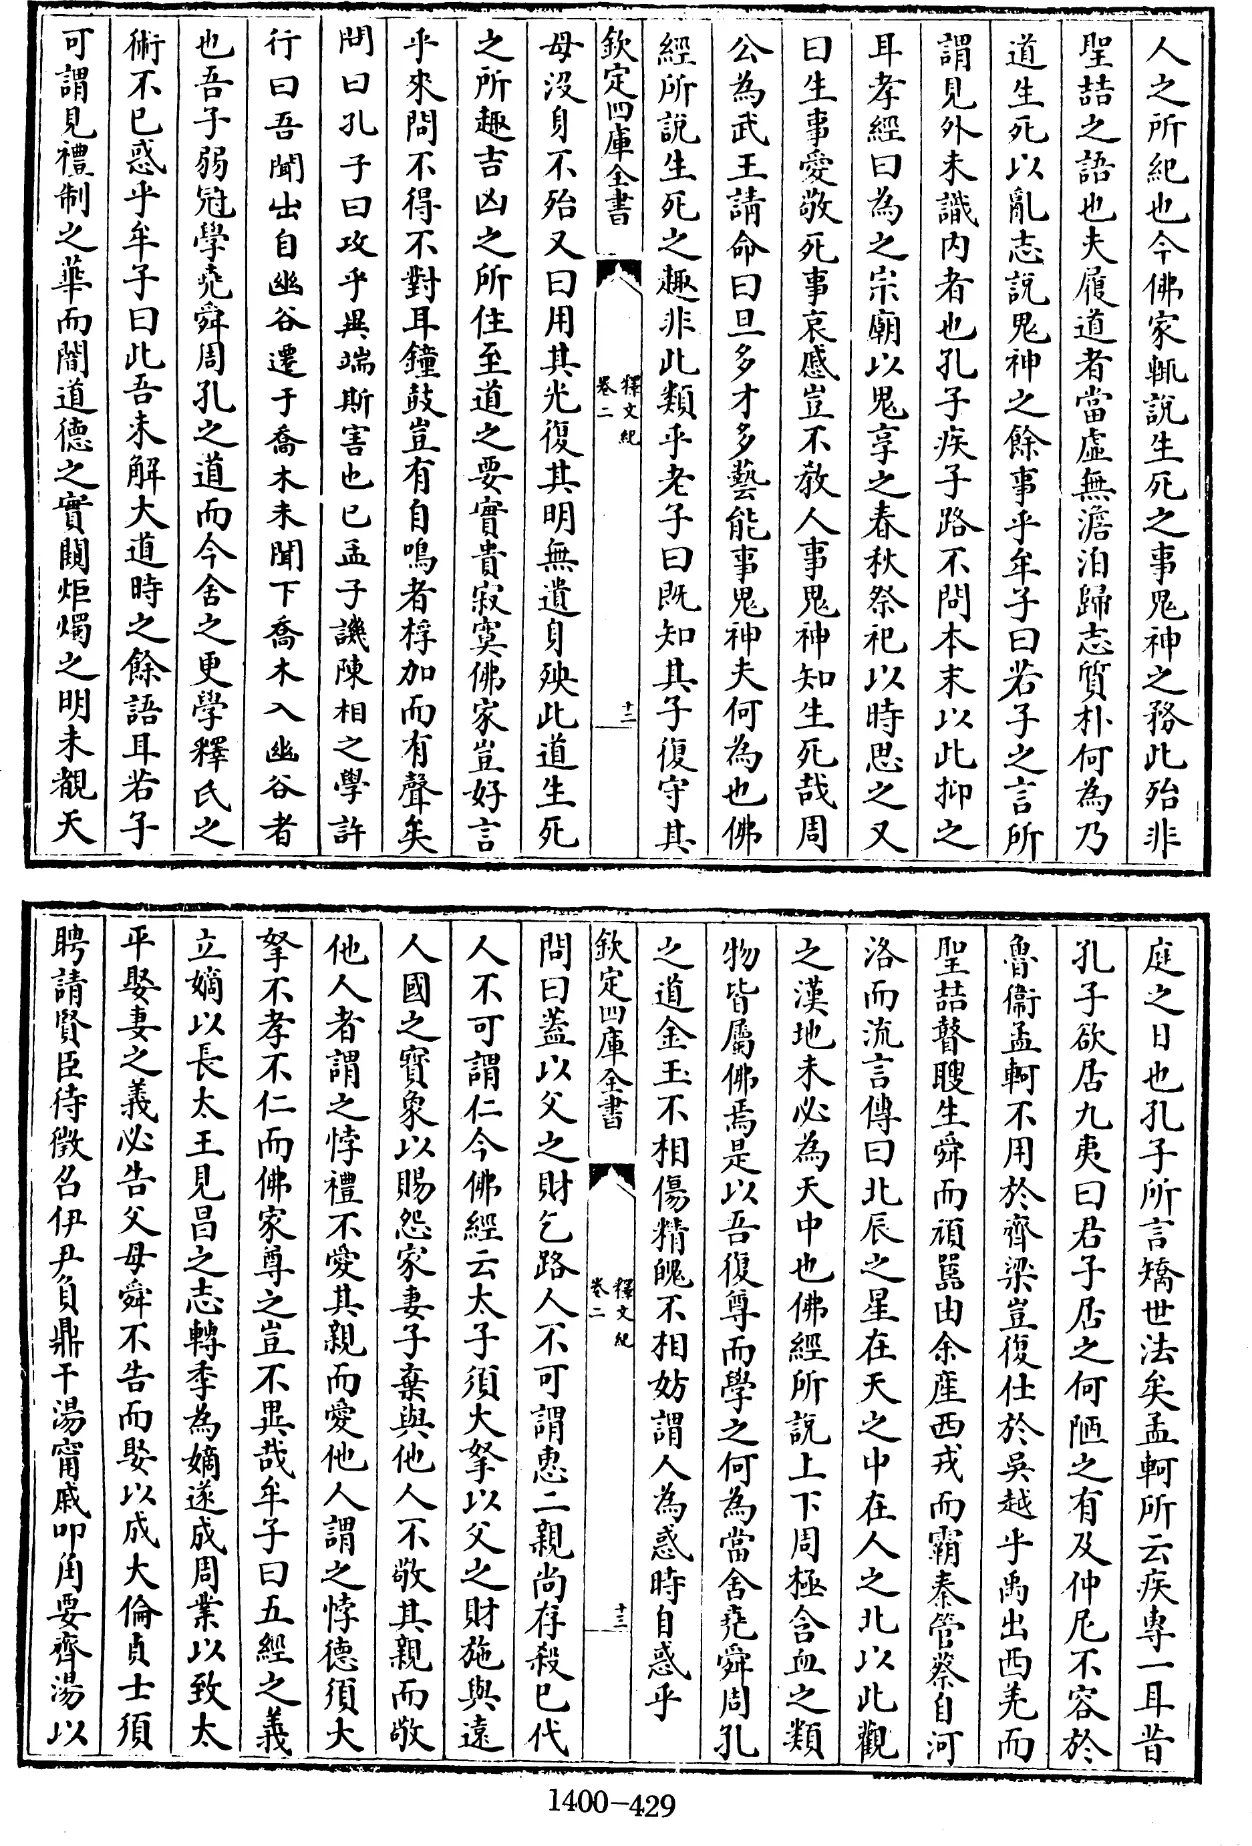 人之所紀也今佛家輒說生死之事鬼神之務此殆非
聖喆之語也夫履道者當虛無澹泊歸志質朴何為乃
道生死以亂志說鬼神之餘事乎牟子曰若子之言所
謂見外未識内者也孔子疾子路不問本末以此抑之
耳孝經曰為之宗廟以鬼享之春秋祭祀以時思之又
曰生事愛敬死事哀慼豈不敎人事鬼神知生死哉周
公為武王請命曰旦多才多藝能事鬼神夫何為也佛
經所說生死之趣非此類乎老子曰既知其子復守其
欽定四庫全書
釋文紀
卷二
十二
母沒身不殆又曰用其光復其明無遺身殃此道生死
之所趣吉凶之所住至道之要實貴寂寞佛家豈好言
乎來問不得不對耳鐘鼓豈有自鳴者桴加而有聲矣
問曰孔子曰攻乎異端斯害也已孟子譏陳相之學許
行曰吾聞出自幽谷遷于喬木未聞下喬木入幽谷者
也吾子弱冠學堯舜周孔之道而今舍之更學釋氏之
術不已惑乎牟子曰此吾未解大道時之餘語耳若子
可謂見禮制之華而闇道德之實闚炬燭之明未覩天
庭之日也孔子所言矯世法矣孟軻所云疾專一耳昔
孔子欲居九夷曰君子居之何陋之有及仲尼不容於
魯衞孟軻不用於齊梁豈復仕於吳越乎禹出西羌而
聖喆瞽瞍生舜而頑嚚由余産西戎而霸秦管蔡自河
洛而流言傳曰北辰之星在天之中在人之北以此觀
之漢地未必為天中也佛經所說上下周極含血之類
物皆屬佛焉是以吾復尊而學之何為當舍堯舜周孔
之道金玉不相傷精魄不相妨謂人為惑時自惑乎
欽定四庫全書
釋文紀
卷二
十三
問曰蓋以父之財乞路人不可謂惠二親尚存殺已代
人不可謂仁今佛經云太子須大拏以父之財施與遠
人國之寳象以賜怨家妻子棄與他人不敬其親而敬
他人者謂之悖禮不愛其親而愛他人謂之悖德須大
拏不孝不仁而佛家尊之豈不異哉牟子曰五經之義
立嫡以長太王見昌之志轉季為嫡遂成周業以致太
平娶妻之義必告父母舜不告而娶以成大倫貞士須
聘請賢臣待徵召伊尹負鼎干湯甯戚叩角要齊湯以
1400-429